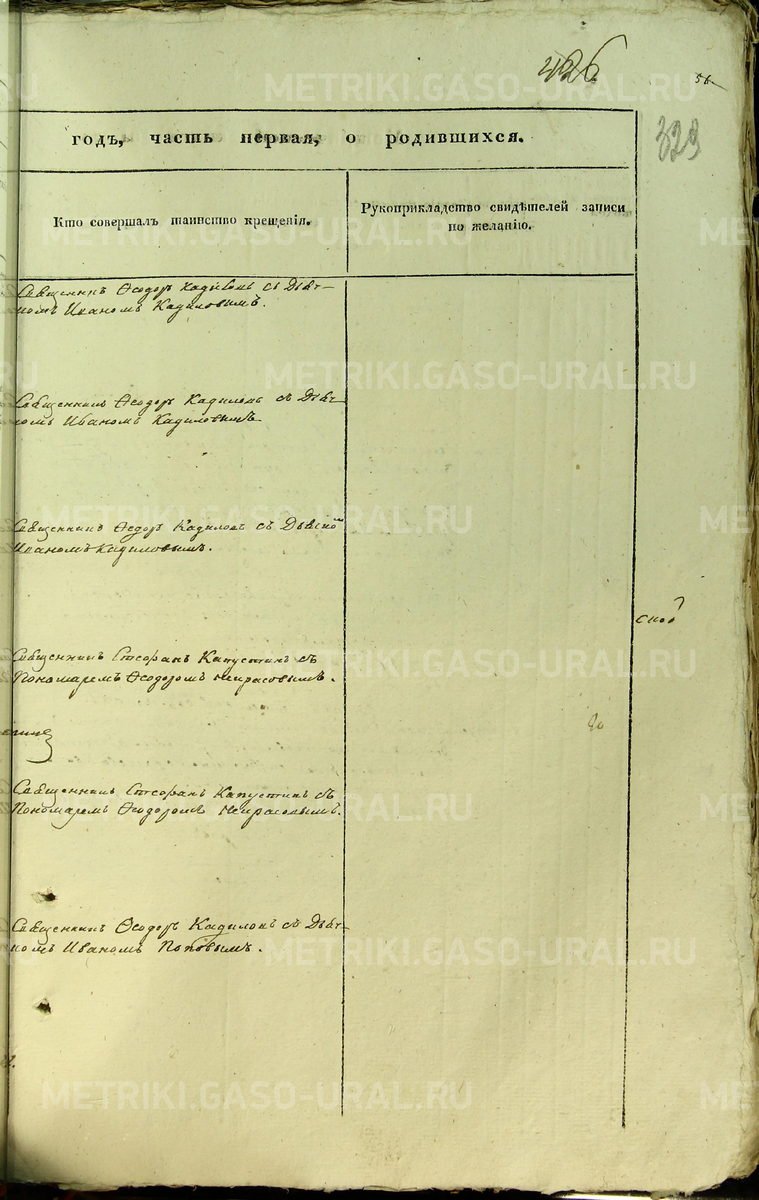 426
56
329
годъ, часть первая, о родившихся.
Кто совершалъ таинство крещенія.
Рукоприкладство свидѣтелей записи
по желанію.
Священникъ Ѳеодоръ Кадиловъ съ Дьяч-
комъ Иваномъ Кадиловымъ.
Священникъ Ѳеодоръ Кадиловъ съ Дьяч-
комъ Иваномъ Кадиловымъ
Священникъ Ѳедоръ Кадиловъ съ
Иваномъ Кадиловымъ.
Священникъ Стефанъ Капустинъ съ
Пономаремъ Ѳеодоромъ Некрасовымъ.
Священникъ Стефанъ Капустинъ съ
Пономаремъ Ѳеодоромъ Некрасовымъ.
Священникъ Ѳеодоръ Кадиловъ съ Дьяч-
комъ Иваномъ Поповымъ.
METRIKI.GASO-URAL.RU